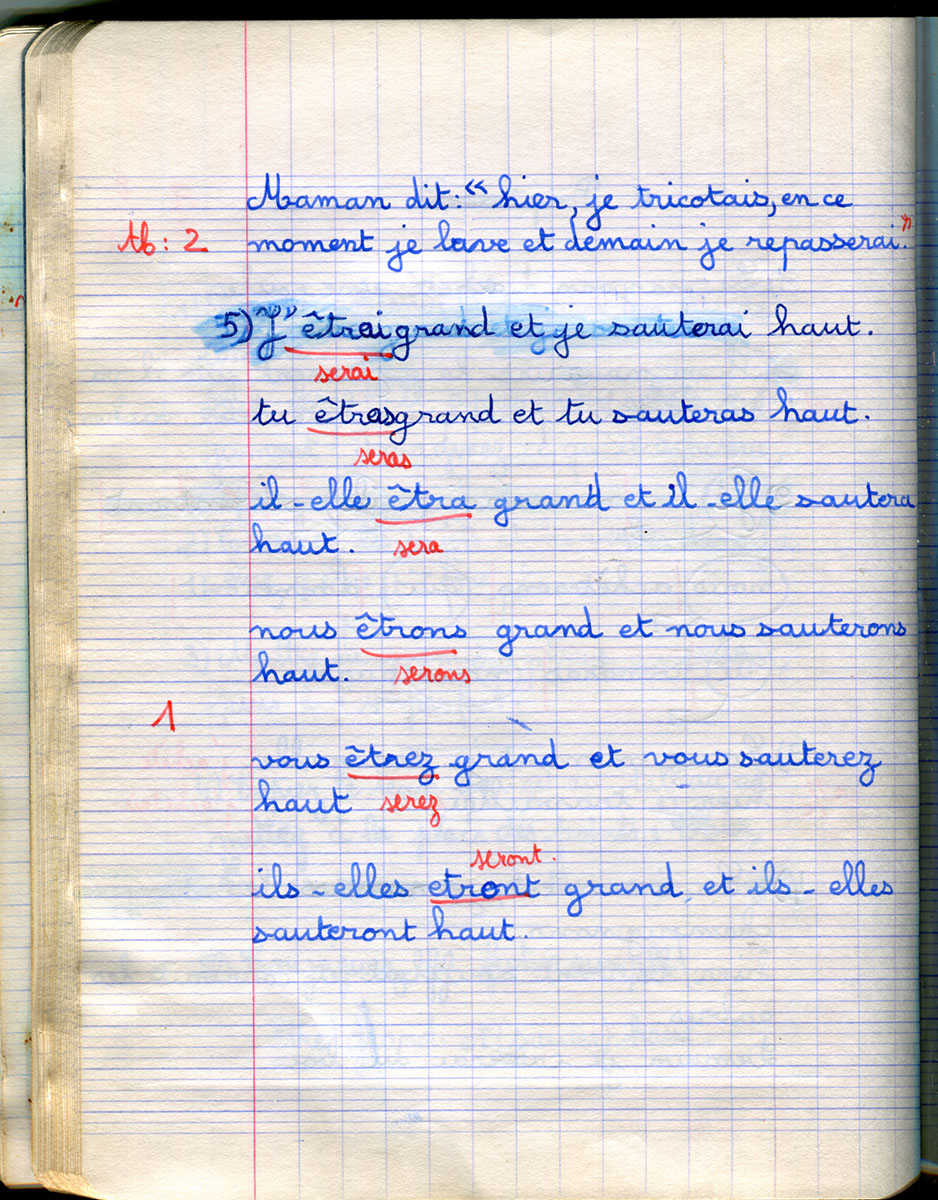 Maman dit: « hier, je tricotais, en ce
tb: 2 moment je lave et demain je repasserai. »
5) J' êtrai grand et je sauterai haut.
serai
tu êtras grand et tu sauteras haut.
seras
il - elle êtra grand et il - elle sautera
haut. sera
nous êtrons grand et nous sauterons
haut. serons
1
vous êtrez grand et vous sauterez
haut serez
seront.
ils - elles etront grand, et ils - elles
sauteront haut.